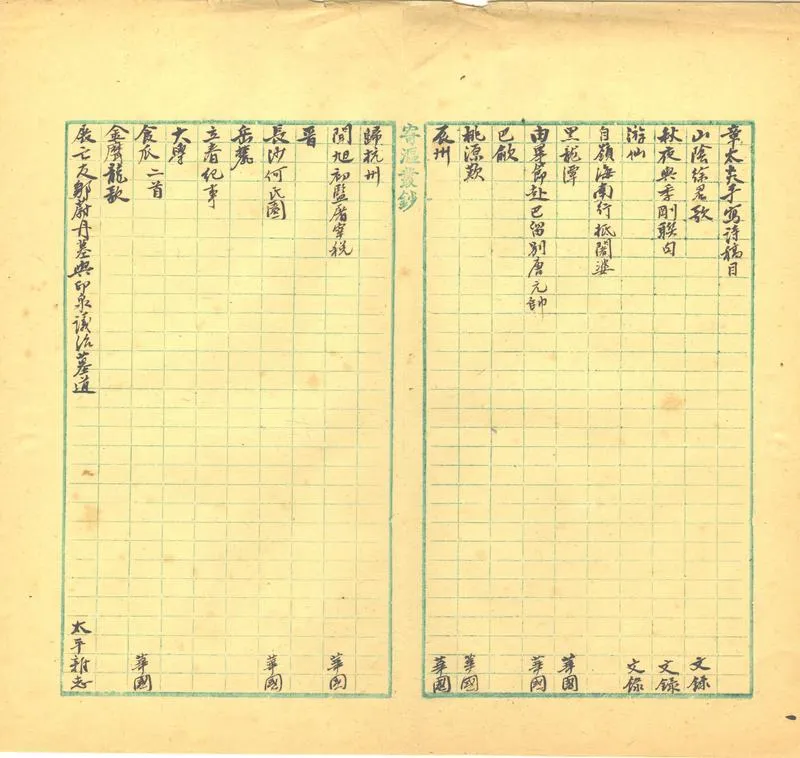 章太炎手寫詩稿目
山陰徐君歌 文錄
秋夜與季剛聯句 文錄
游仙 文錄
自嶺海南行抵闍婆
黑龍潭 華國
由畢節赴巴留別唐元帥 華國
巴歈
桃源歎 華國
辰州 華國
寄漚叢鈔
歸杭州
聞旭初監屠宰稅 華國
晉
長沙何氏園 華國
岳麓
立春紀事
大學
食瓜二首 華國
金龍歌
展亡友鄒蔚丹墓與印泉議治墓道 太平雜志